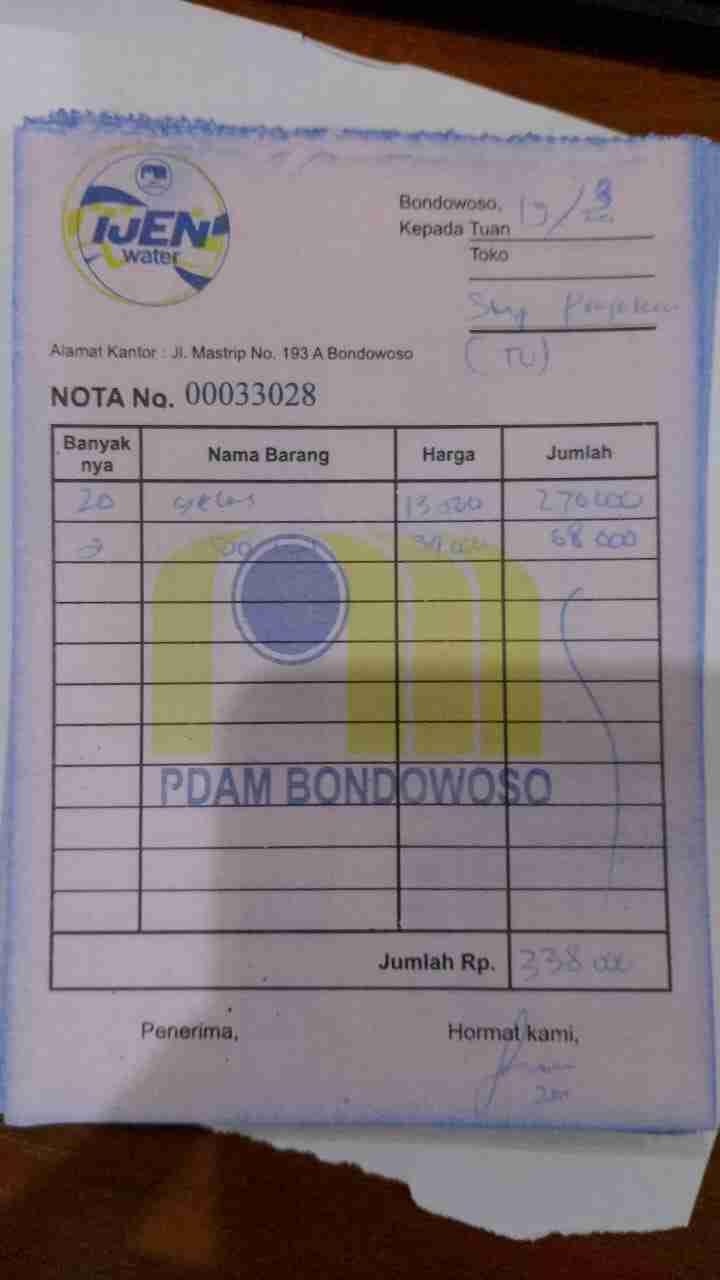 IJEN
water
Bondowoso, 19/8
Kepada Tuan
Toko
(TU)
Alamat Kantor : Jl. Mastrip No. 193 A Bondowoso
NOTA No. 00033028
Banyak nya Nama Barang Harga Jumlah
20 gelas 13.500 270000
2 34.000 68 000
PDAM BONDOWOSO
Jumlah Rp. 338 000
Penerima, Hormat kami,